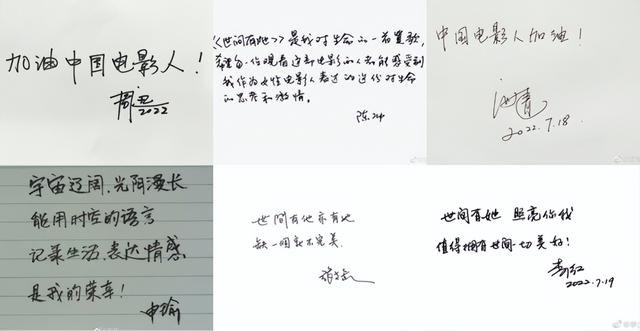 加油中国电影人！
周迅
2022
《世间有她》是我对生命的一首赞歌，
希望每一位观看这部电影的人都能感受到
我作为女性电影人表达的这份对生命
的思考和激情。
陈冲
中国电影人加油！
2022.7.18
宇宙辽阔，光阴漫长
能用时空的语言
记录生活、表达情感
是我的荣幸！
世间有他亦有她
缺一个就不完美
世间有她 照亮你我
值得拥有世间一切美好！
2022.7.19